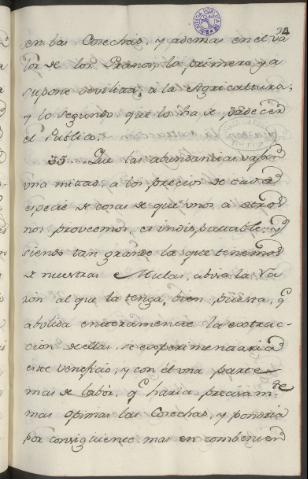 en las Cosechas, y ademas en el va
lor de los Granos, la primera ya
supone devilitar, à la Agricultura,
y lo segundo, que lo ha de padecer
el Publico.
35. Que las abundancias vajan
una mitad, à los precios de cada
especie de cosas de que unos à otros
nos proveemos, es indisputable, y
siendo tan grande la que tenemos
de nuestras Mulas, abra la Va
zon al que la tenga, bien puesta, q.e
abolida enteramente la extrac
cion de ellas, se experimentaria
este veneficio, y con el una parte
mas de labor, q.e haria precisam.te
mas opimas las Cosechas, y pondria
por consiguiente mas en combeniend